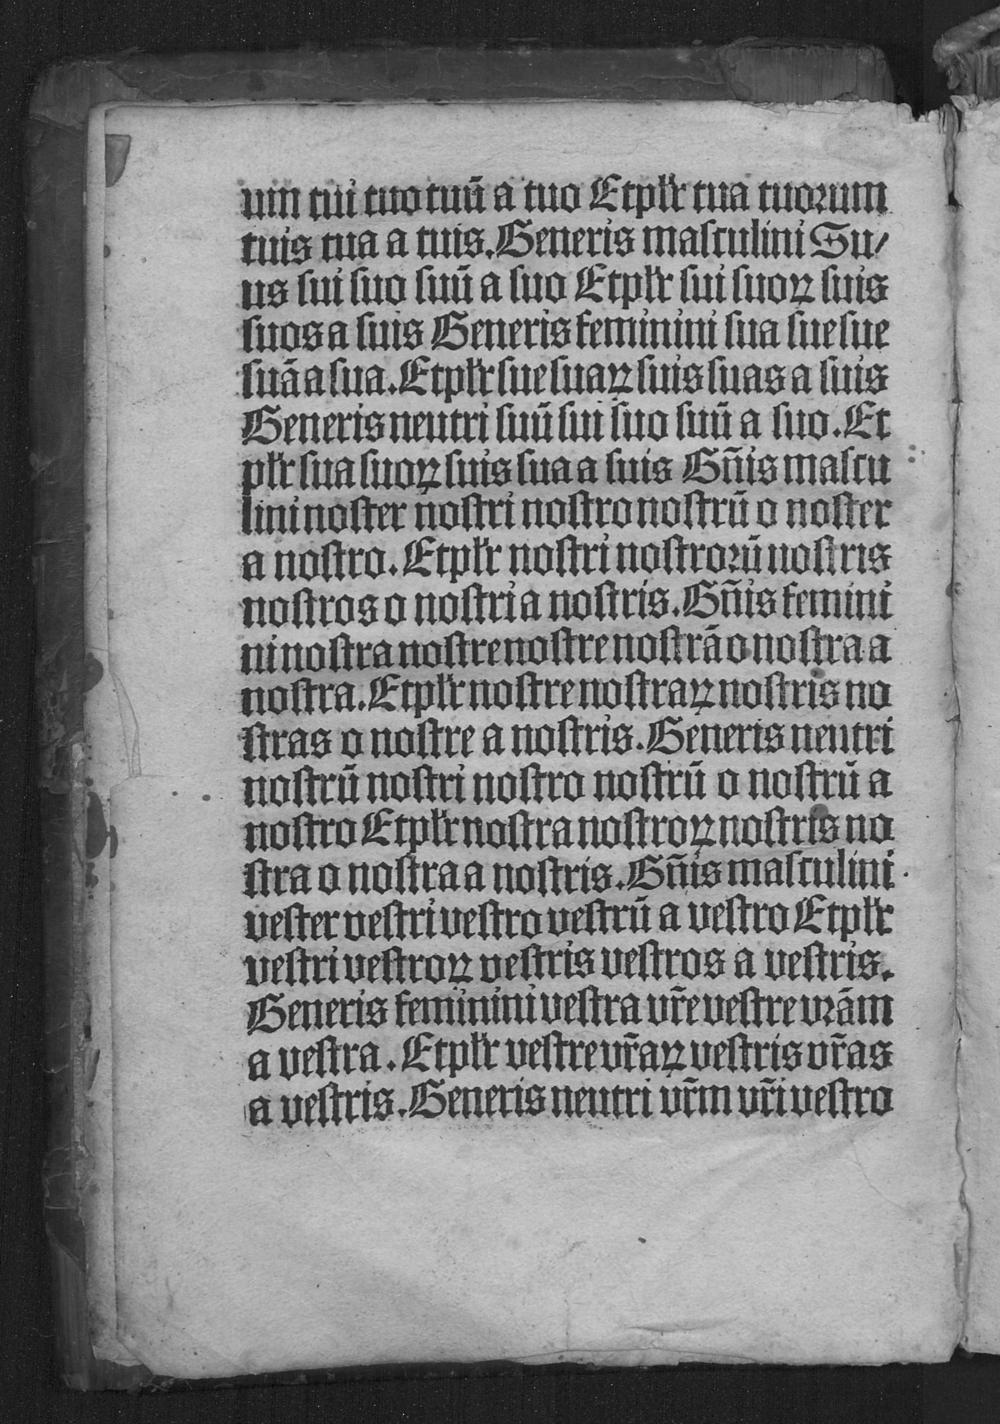 um tui tuo tuū a tuo Et pl̄r tua tuorum
tuis tua a tuis. Generis masculini Su/
us sui suo suū a suo Et pl̄r sui suoꝝ suis
suos a suis Generis feminini sua sue sue
suā a sua. Et pl̄r sue suaꝝ suis suas a suis
Generis neutri suū sui suo suū a suo. Et
pl̄r sua suoꝝ suis sua a suis Gn̄is mascu
lini noster nostri nostro nostrū o noster
a nostro. Et pl̄r nostri nostrorū nostris
nostros o nostri a nostris. Gn̄is femini
ni nostra nostre nostre nostrā o nostra a
nostra. Et pl̄r nostre nostraꝝ nostris no
stras o nostre a nostris. Generis neutri
nostrū nostri nostro nostrū o nostrū a
nostro Et pl̄r nostra nostroꝝ nostris no
stra o nostra a nostris. Gn̄is masculini
vester vestri vestro vestrū a vestro Et pl̄r
vestri vestroꝝ vestris vestros a vestris.
Generis feminini vestra vr̄e vestre vrām
a vestra. Et pl̄r vestre vr̄aꝝ vestris vr̄as
a vestris. Generis neutri vr̄m vr̄i vestro